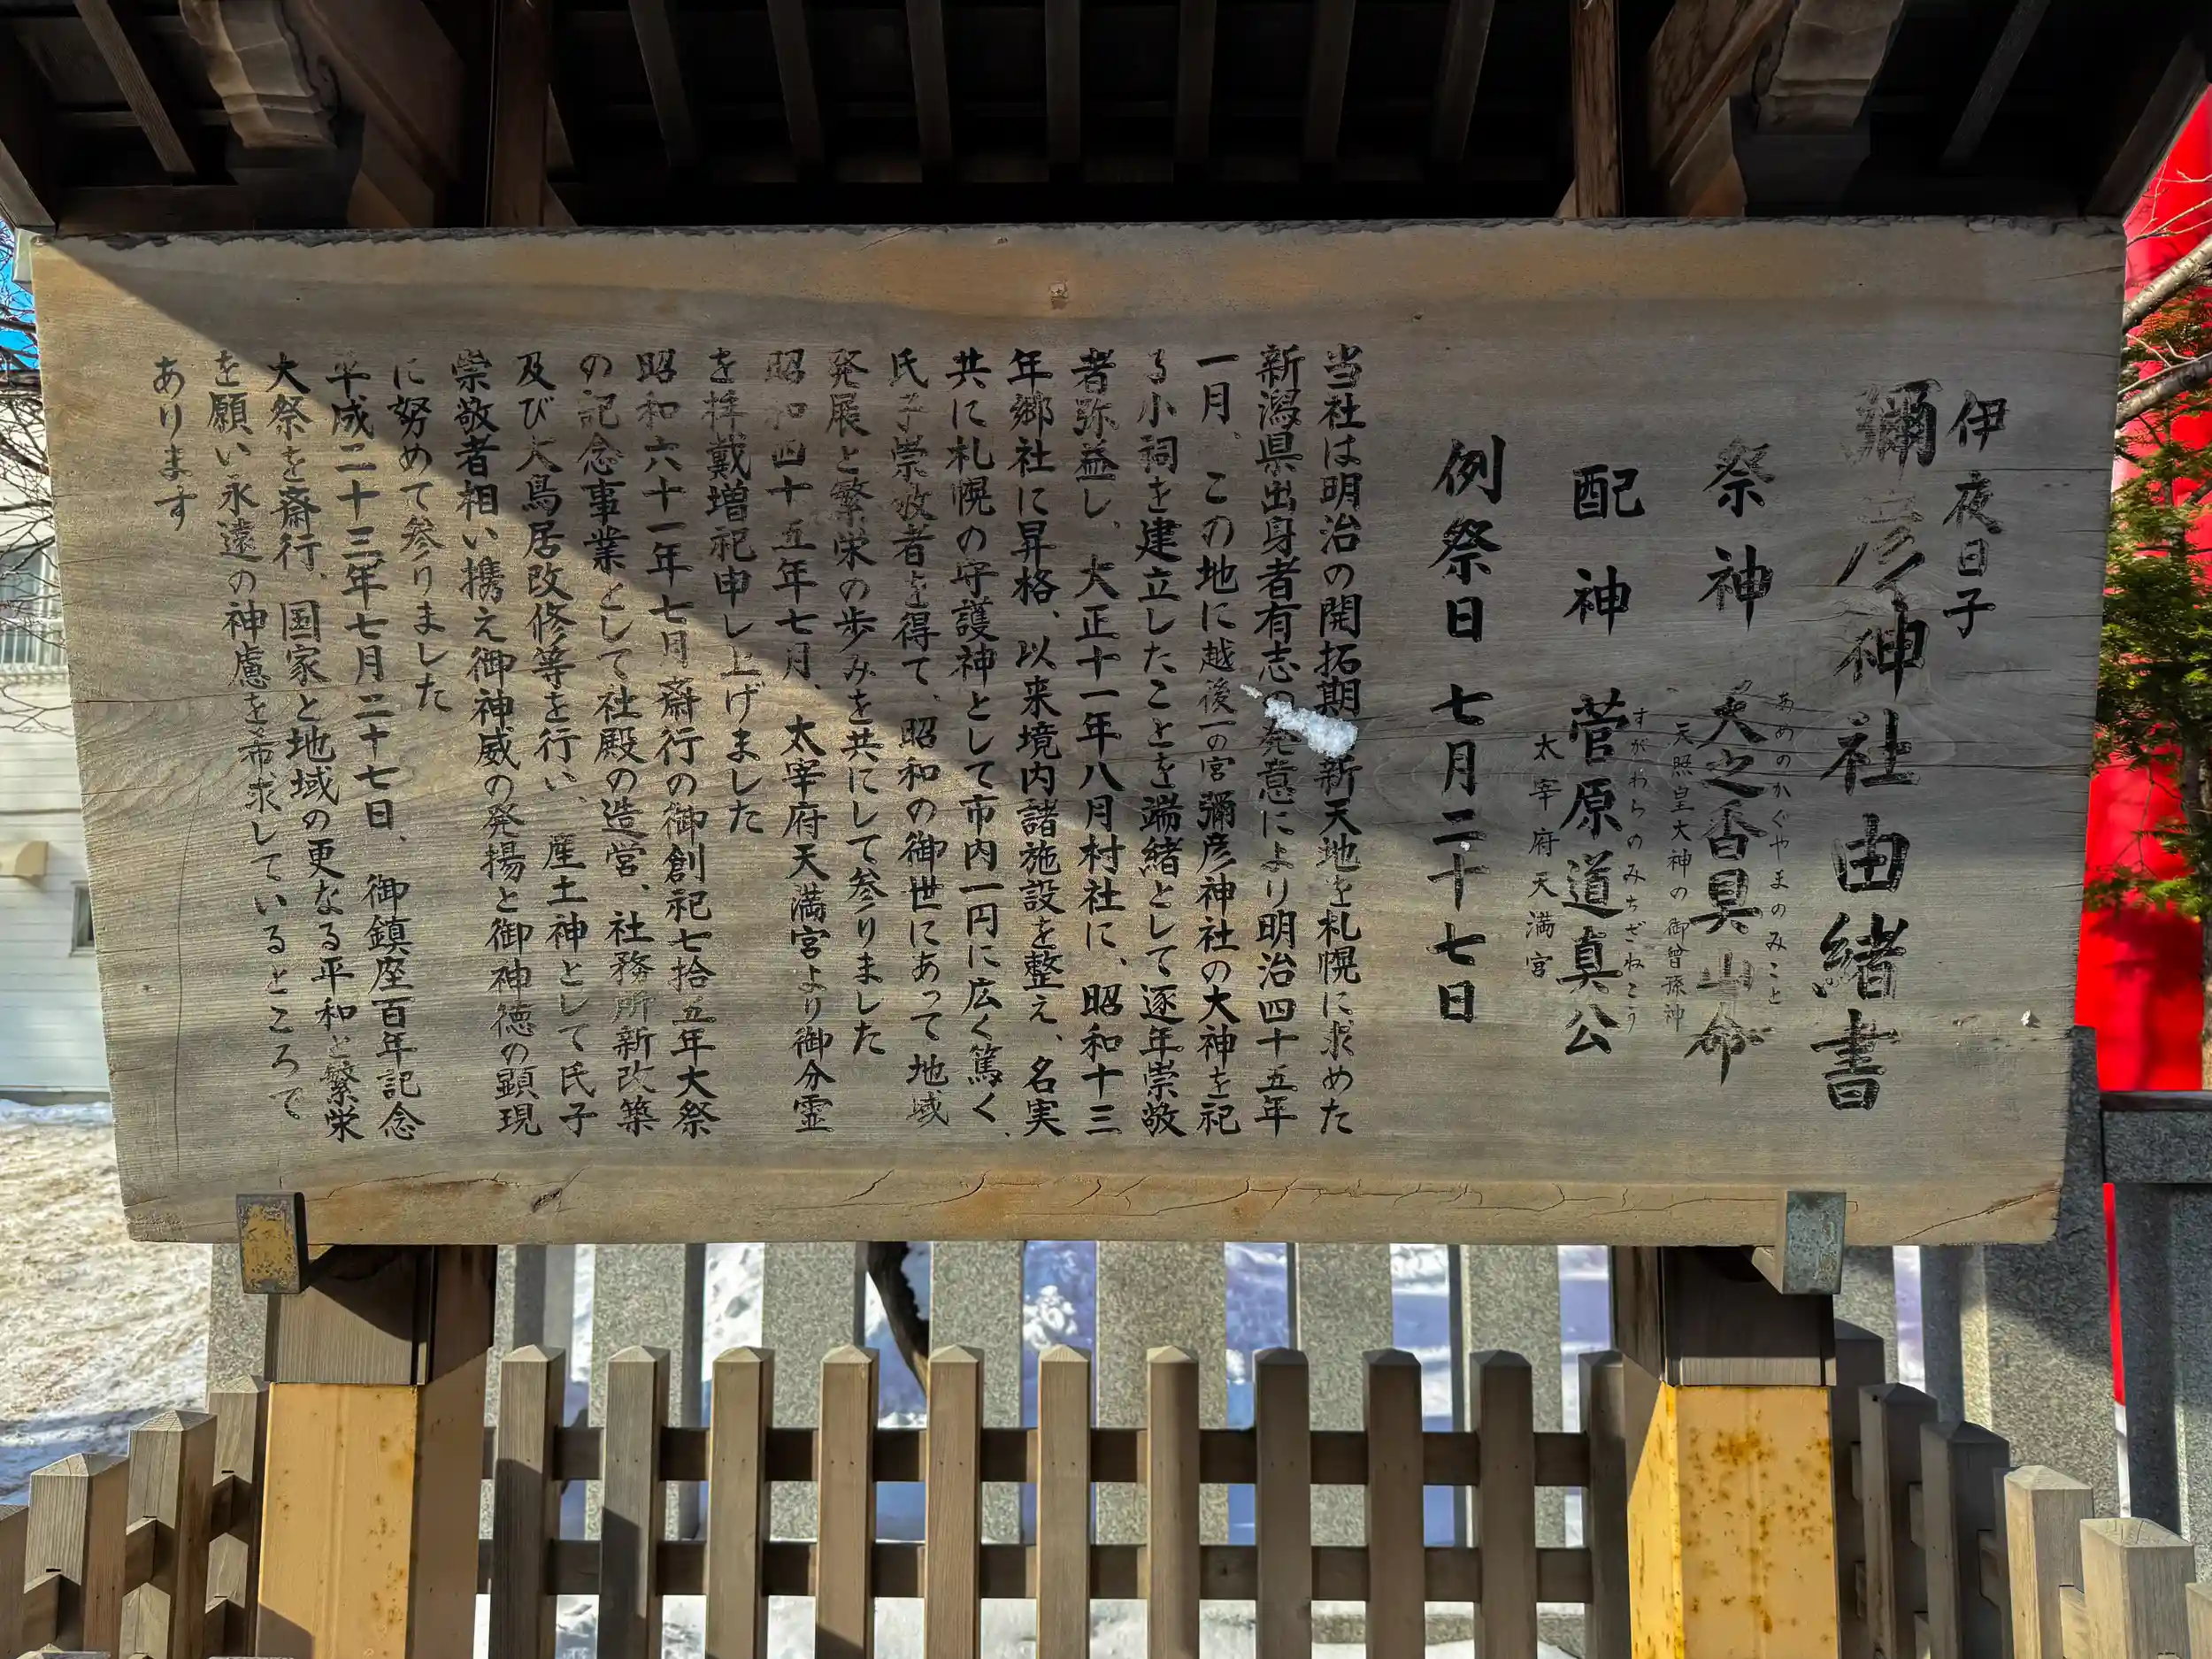 伊夜日子
彌彦神社由緒書
祭神 天之香具山命
あめのかぐやまのみこと
天照皇大神の御曾孫神
配神 菅原道真公
すがわらのみちざねこう
太宰府天満宮
例祭日 七月二十七日
当社は明治の開拓期 新天地を札幌に求めた
新潟県出身者有志の発意により明治四十五年
一月、この地に越後一の宮彌彦神社の大神を祀
る小祠を建立したことを端緒として逐年崇敬
者弥益し、大正十一年八月村社に、昭和十三
年郷社に昇格、以来境内諸施設を整え、名実
共に札幌の守護神として市内一円に広く篤く、
氏子崇敬者を得て、昭和の御世にあって地域
発展と繁栄の歩みを共にして参りました
昭和四十五年七月、太宰府天満宮より御分霊
を拝戴増祀申し上げました
昭和六十一年七月斎行の御創祀七拾五年大祭
の記念事業として社殿の造営、社務所新改築
及び大鳥居改修等を行い、産土神として氏子
崇敬者相い携え御神威の発揚と御神徳の顕現
に努めて参りました
平成二十三年七月二十七日、御鎮座百年記念
大祭を斎行、国家と地域の更なる平和と繁栄
を願い永遠の神慮を希求しているところで
あります